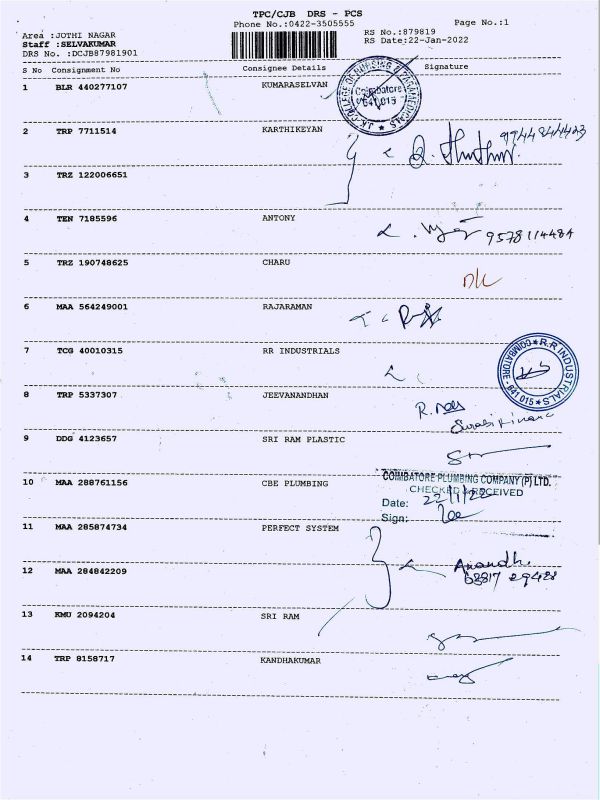 TPC/CJB DRS - PCS
Phone No.:0422-3505555
Page No.:1
Area :JOTHI NAGAR
RS No.:879819
Staff :SELVAKUMAR
RS Date:22-Jan-2022
DRS No. :DCJB87981901
S No Consignment No Consignee Details Signature
1 BLR 440277107 KUMARASELVAN
J.K. COLLEGE OF NURSING & PARAMEDICALS
Coimbatore
641 015
2 TRP 7711514 KARTHIKEYAN
3 TRZ 122006651
4 TEN 7185596 ANTONY
9578114484
5 TRZ 190748625 CHARU
6 MAA 564249001 RAJARAMAN
7 TCG 40010315 RR INDUSTRIALS
R.R INDUSTRIALS
COIMBATORE - 641 015
8 TRP 5337307 JEEVANANDHAN
9 DDG 4123657 SRI RAM PLASTIC
10 MAA 288761156 CBE PLUMBING
COIMBATORE PLUMBING COMPANY (P) LTD.
CHECKED & RECEIVED
Date: 22/1/22
Sign:
11 MAA 285874734 PERFECT SYSTEM
Anandh
12 MAA 284842209
13 KMU 2094204 SRI RAM
14 TRP 8158717 KANDHAKUMAR